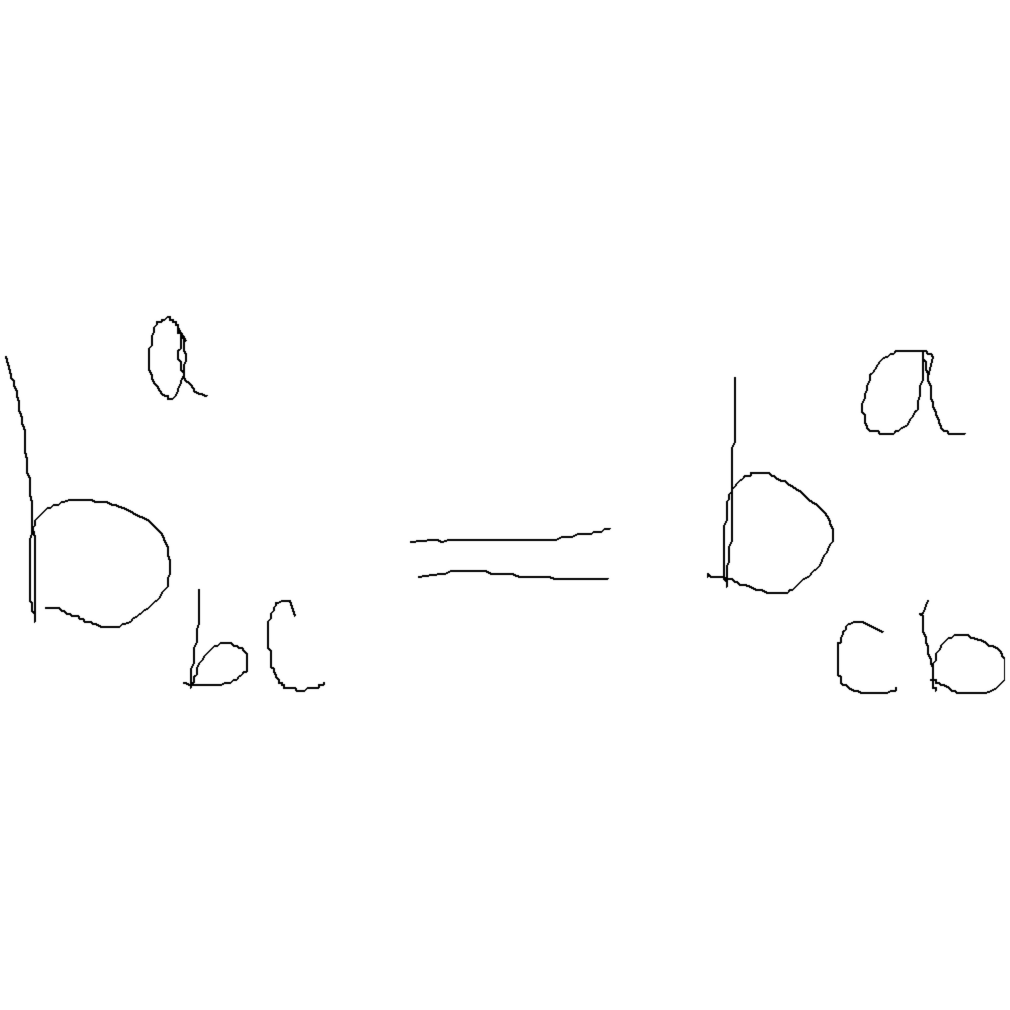 b^a_{bc} = b^a_{cb}